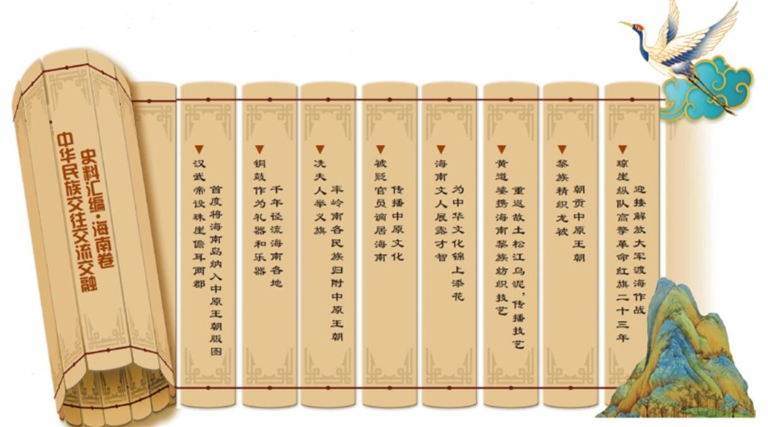 中华民族交往交流交融
史料汇编·海南卷
汉武帝设珠崖儋耳两郡
首度将海南岛纳入中原王朝版图
铜鼓作为礼器和乐器
千年径流海南各地
冼夫人举义旗
率岭南各民族归附中原王朝
被贬官员谪居海南
传播中原文化
海南文人展露才智
为中华文化锦上添花
黄道婆携海南黎族纺织技艺
重返故土松江乌泥，传播技艺
黎族精织龙被
朝贡中原王朝
琼崖纵队高擎革命红旗二十三年
迎接解放大军渡海作战